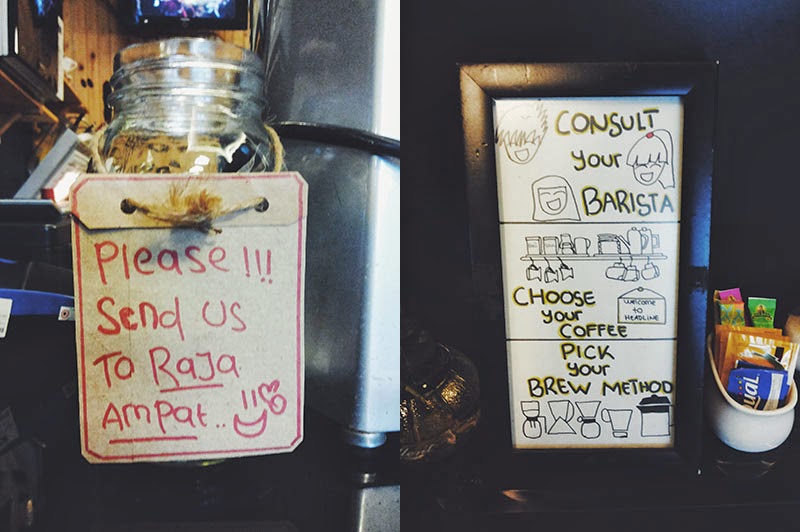 Please !!!
Send us
To Raja
Ampat..
CONSULT
your
BARISTA
CHOOSE
your
COFFEE
welcome to
HEADLINE
PICK
your
BREW METHOD
ual